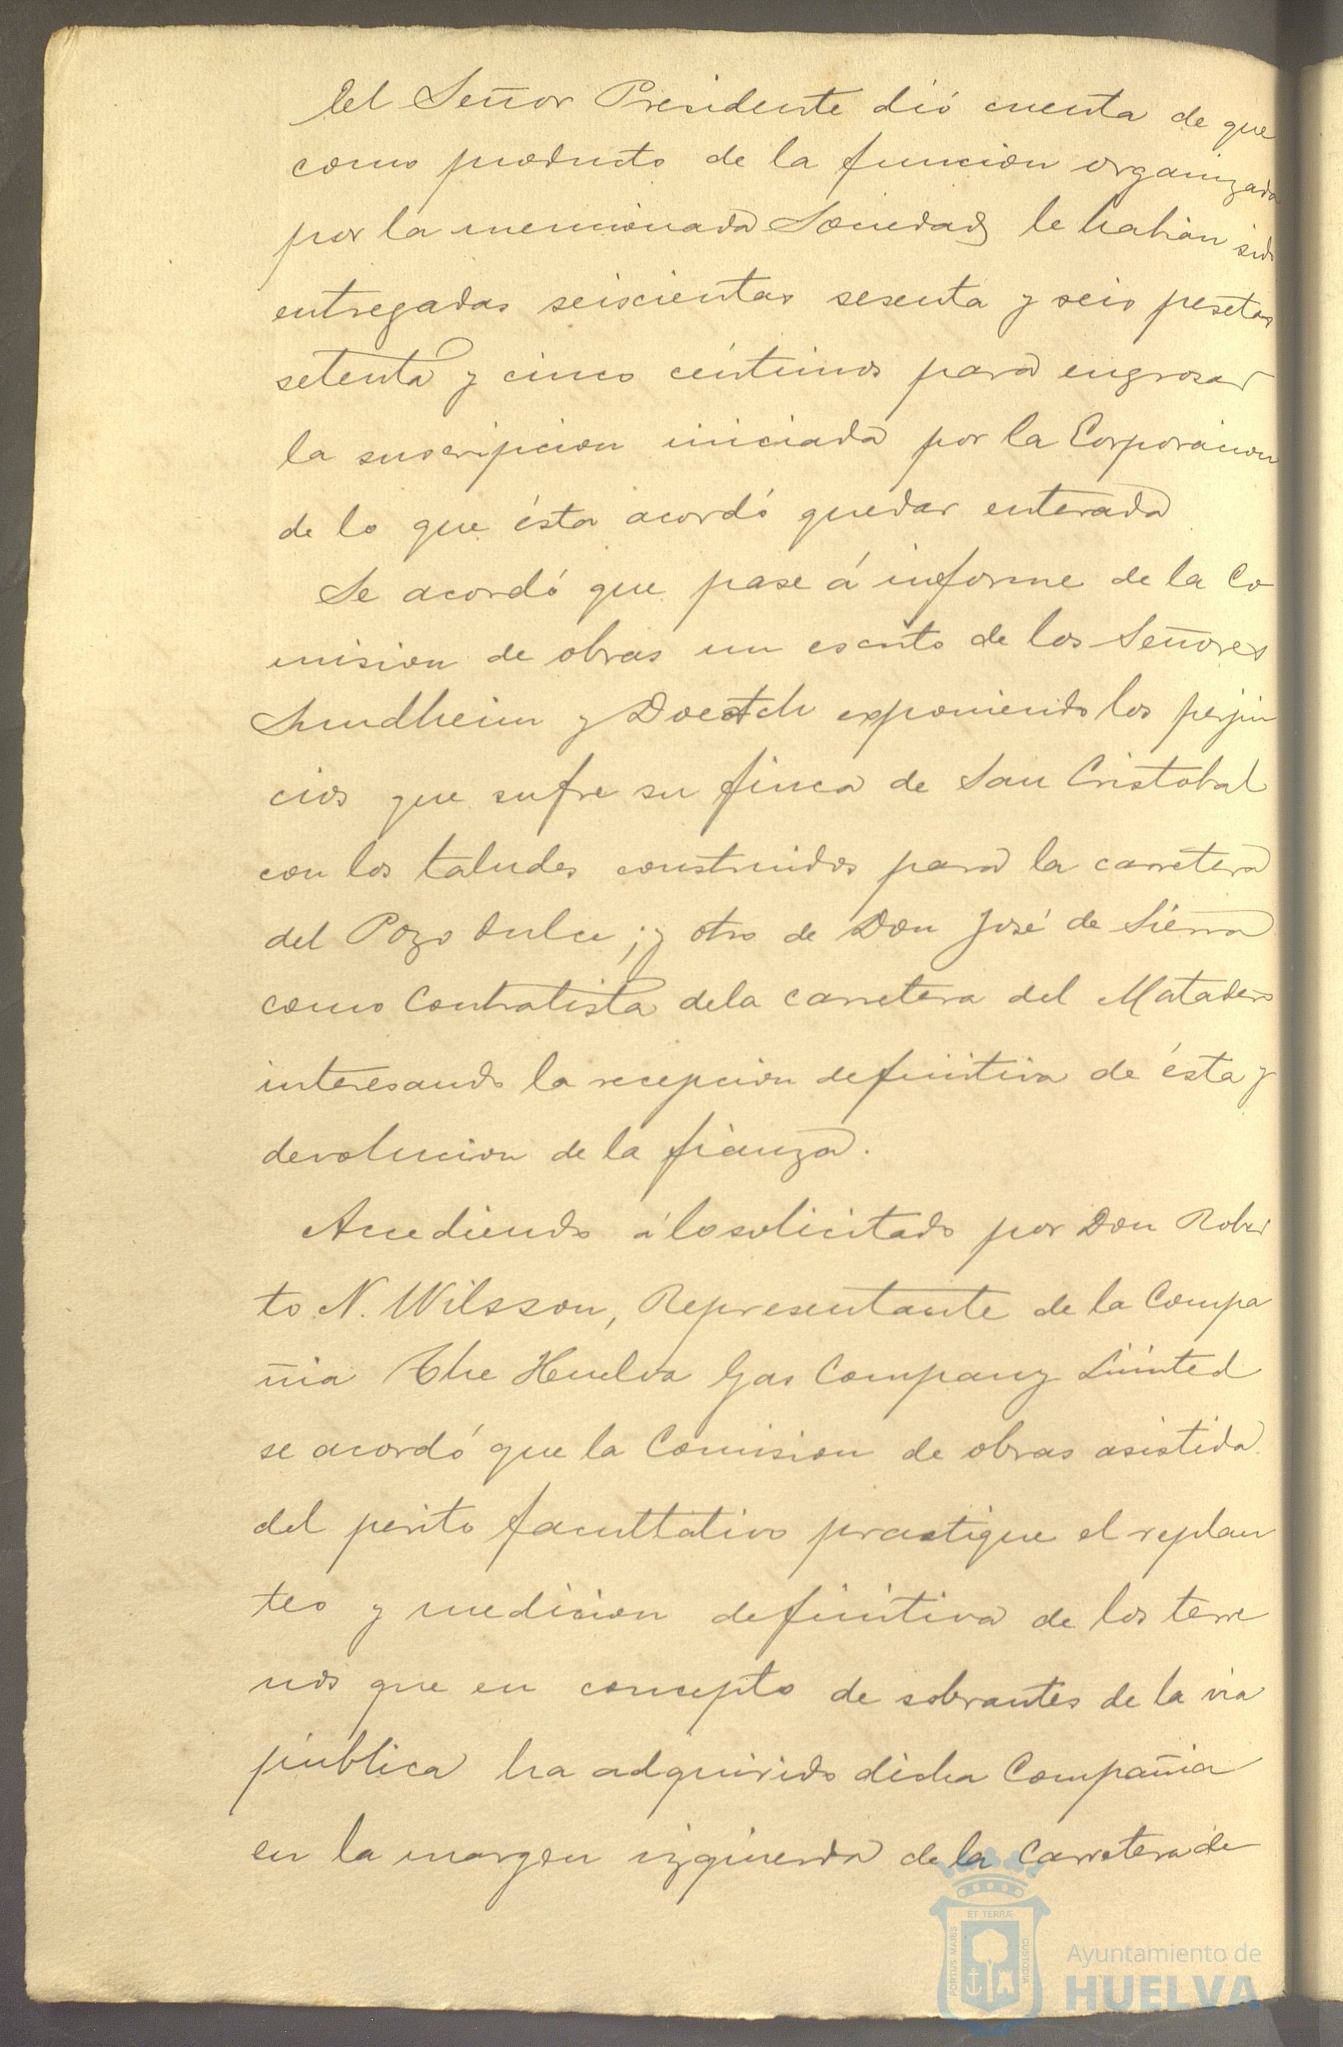 El Señor Presidente dió cuenta de que
como producto de la funcion organizada
por la mencionada Sociedad le habian sido
entregadas seiscientas sesenta y seis pesetas
setenta y cinco céntimos para engrosar
la suscripcion iniciada por la Corporacion
de lo que ésta acordó quedar enterada
Se acordó que pase á informe de la Co
mision de obras un escrito de los Señores
Sundheim y Doetch exponiendo los perjui
cios que sufre su finca de San Cristobal
con los taludes construidos para la carretera
del Pozo dulce; y otro de Don José de Sierra
como Contratista dela carretera del Matadero
interesando la recepcion definitiva de ésta y
devolucion de la fianza.
Accediendo á lo solicitado por Don Rober
to N. Wilsson, Representante de la Compa
ñia The Huelva Gas Company Limited
se acordó que la Comision de obras asistida
del perito facultativo practique el replan
teo y medicion definitiva de los terre
nos que en concepto de sobrantes de la via
pública ha adquirido dicha Compañia
en la margen izquierda de la Carretera de
PORTUS MARIS ET TERRÆ CUSTODIA
Ayuntamiento de
HUELVA